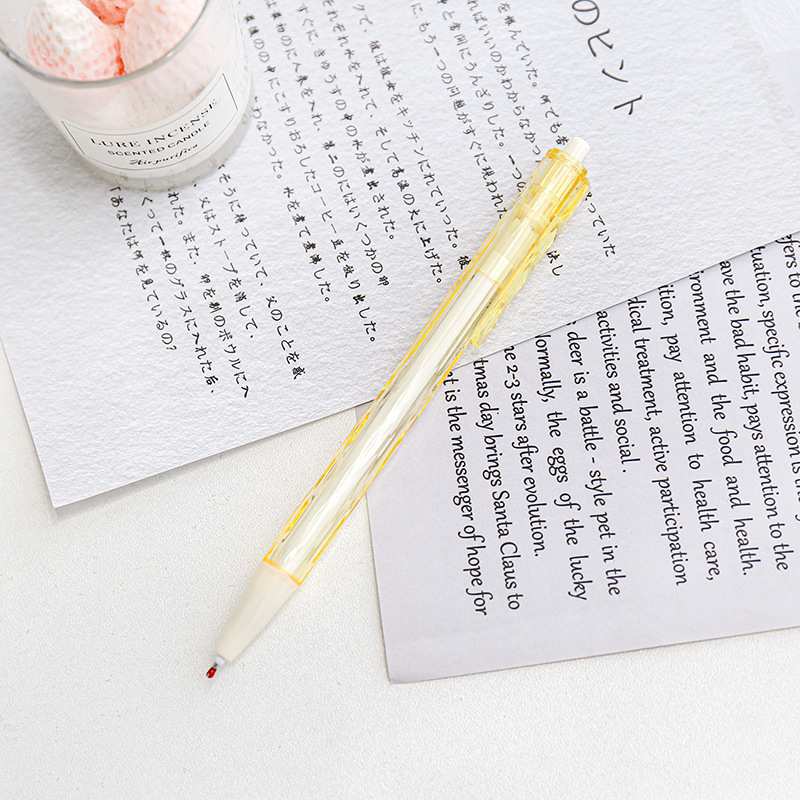 LURE INCENSE
SCENTED CANDLE
Air purifica
のヒント
を掴んでいた。何でも
っていた
ればいいのかわからなかっ
決し
と奮闘にうんざりした。一つの
に、もう一つの問題がすぐに現われた
クで、彼は彼女をキッチンにれていった。彼
それぞれ水を入れて、そして高温の火に上げた。
すぐに、きゅうすの中の水が煮出された。
は最初のに人参を入れ、第二のにはいくつかの卵
最後のの中にこすりおろしたコーヒー豆を放り出した。
わなかった。水を煮て煮沸した。
そうに待っていて、父のことを感
父はストーブを消して、
れた。また、卵を別のボウルに入
くって一杯のグラスに入れた后、
「あなたは何を見ているの?
efers to the
tuation, specific expression is the
ave the bad habit, pays attention to the
ironment and the food and health.
ition, pay attention to health care,
dical treatment, active participation
activities and social .
deer is a battle - style pet in the
ormally, the eggs of the lucky
he 2-3 stars after evolution.
tmas day brings Santa Claus to
t is the messenger of hope for